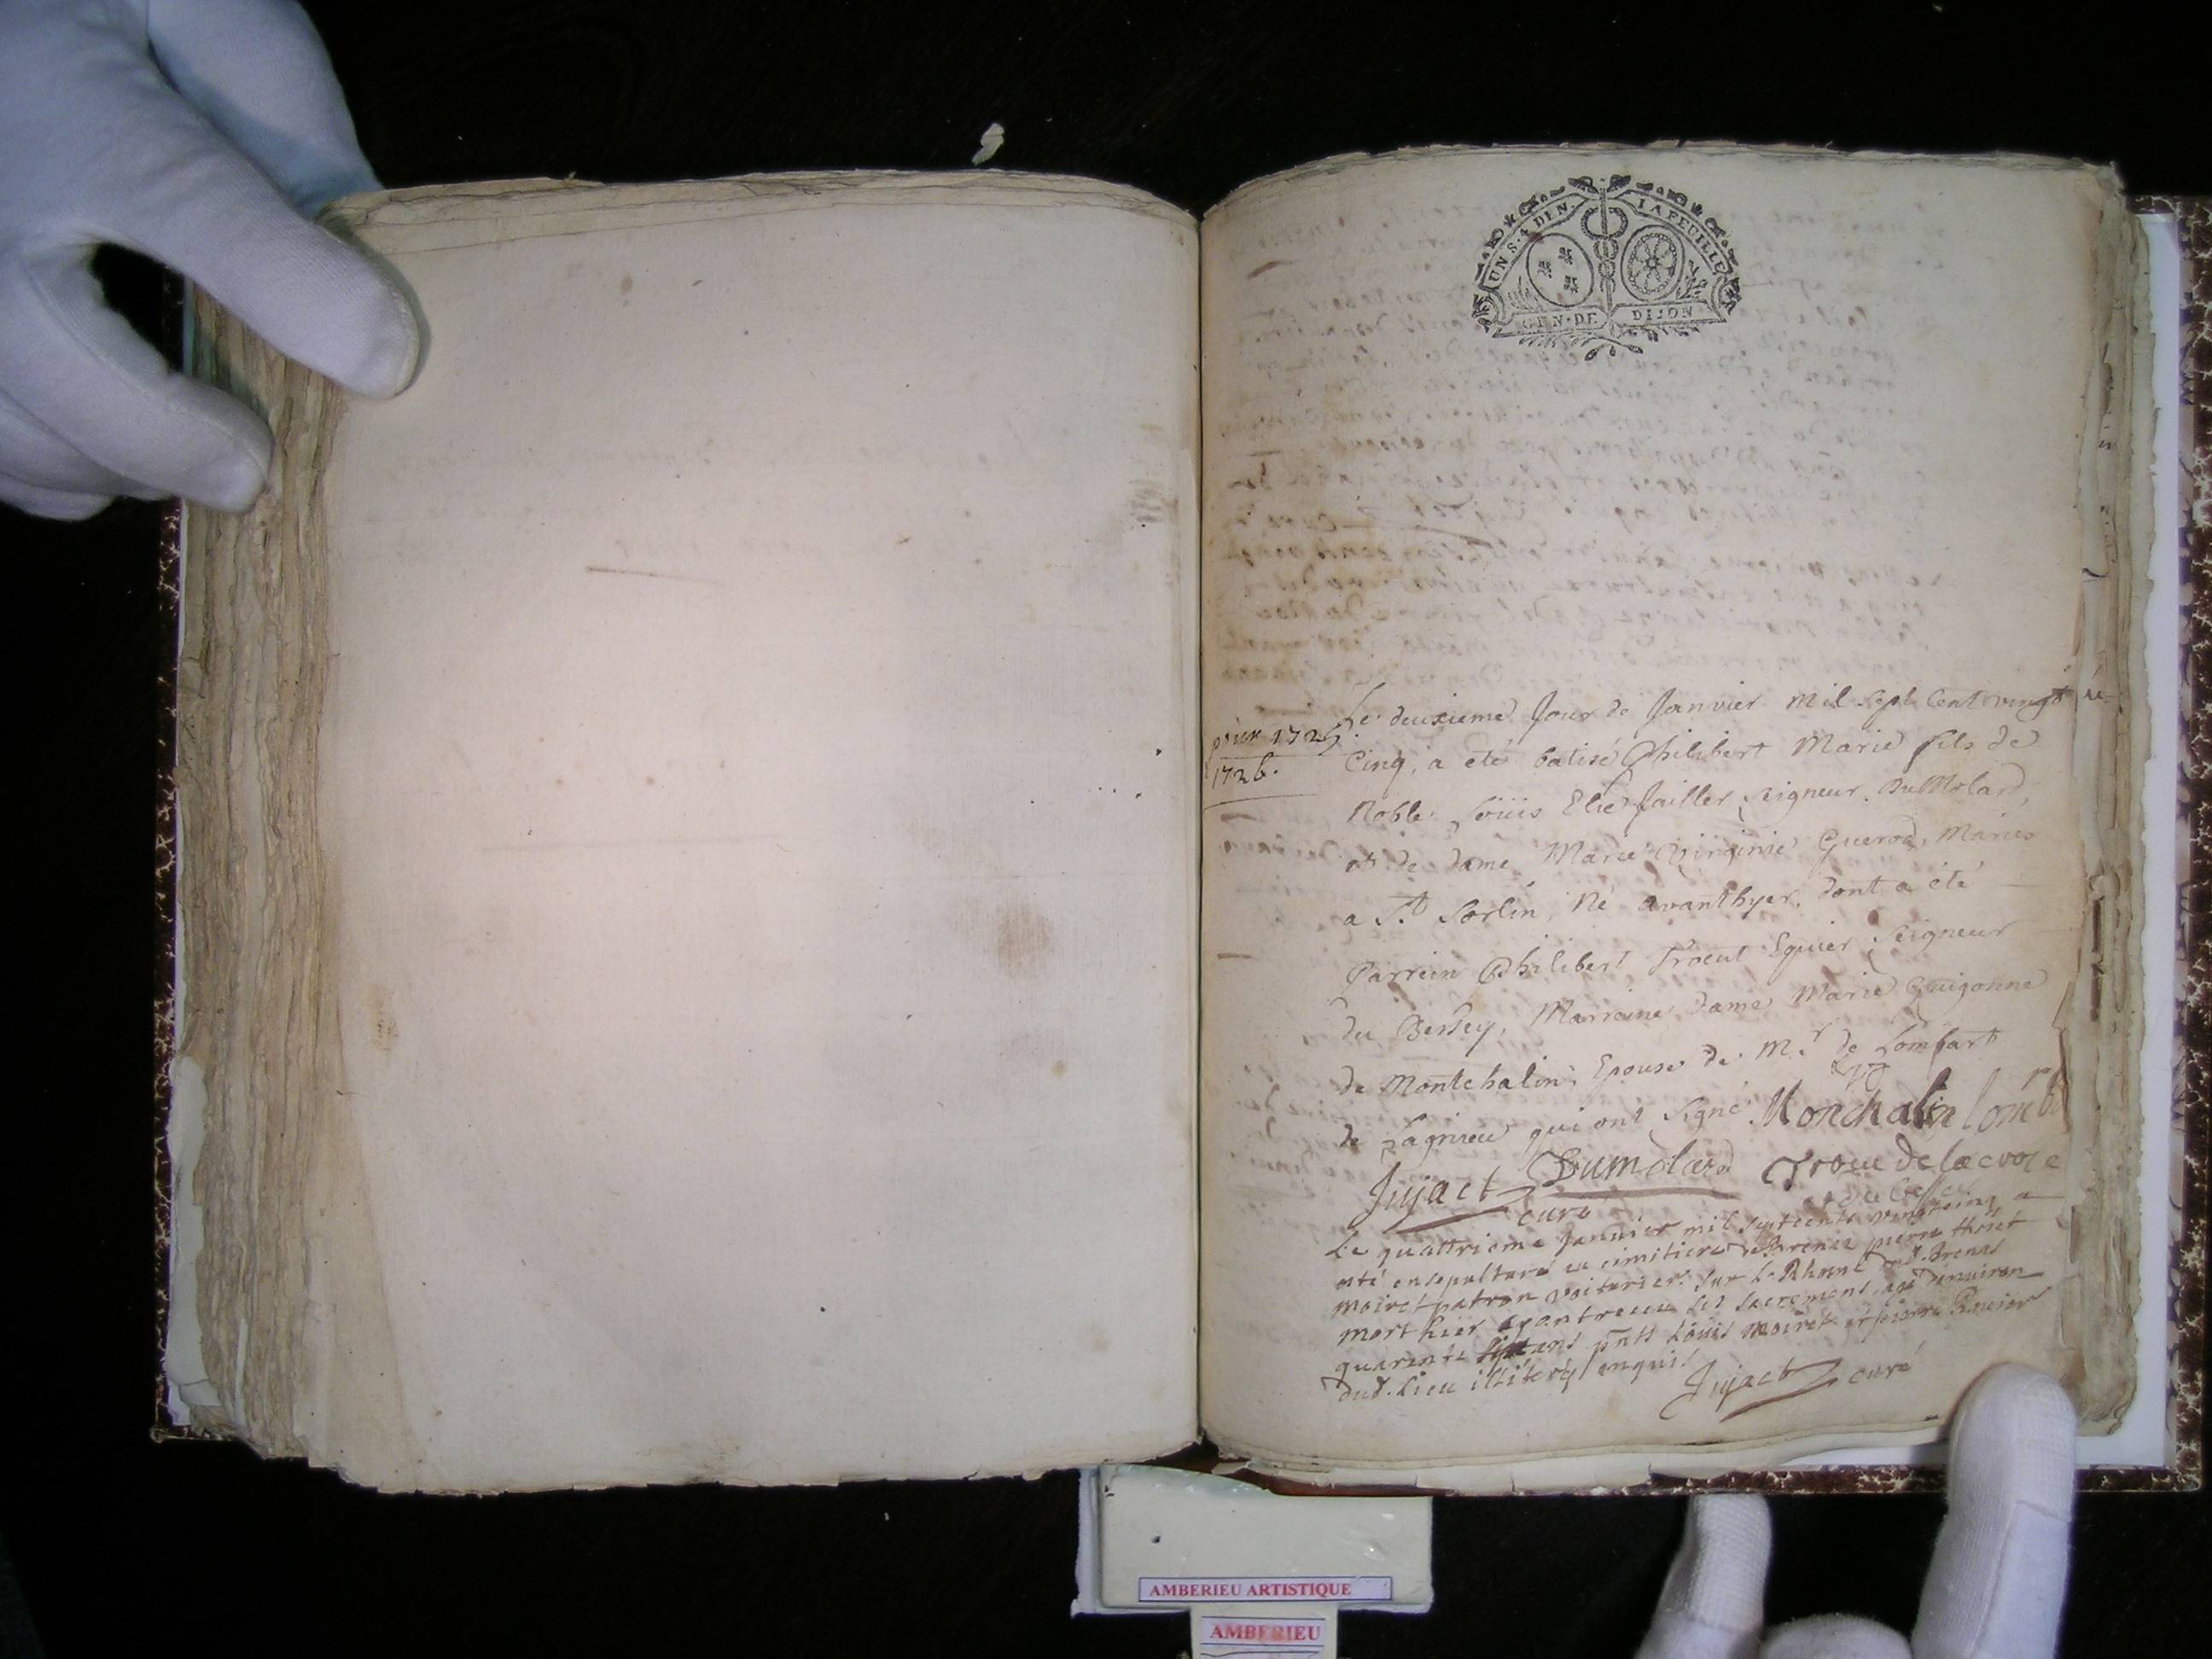 UN S. 4 DEN. LA FEUILLE
GEN. DE DIJON
Le deuxieme Jour de Janvier mil sept Cent vingt
1725
1726.
Cinq, a eté batisé Philibert Marie fils de
Noble Loüis Elie Jailler Seigneur Du Molard,
et de dame Marie Virginie Mariés
a St. Sorlin, Né avanthyer, dont a été
Parrein Philibert Trocut Equier Seigneur
du Marreine dame Marie Guigonne
de Montchalin, Epouse de Mr. de Lombart
de Lagnieu qui ont signé Monchalin
Jujact Dumolard
curé
Le quattrieme Janvier mil septcents vingtcinq a
esté ensepulturé au cimitiere pierre
moiret patron voiturier sur le Rhone
mort hier ayant receu les sacremens agé denuiron
quarente ans pnts Loüis moiret et pierre
dud. Lieu enquis
Jujact curé
AMBERIEU ARTISTIQUE
AMBERIEU